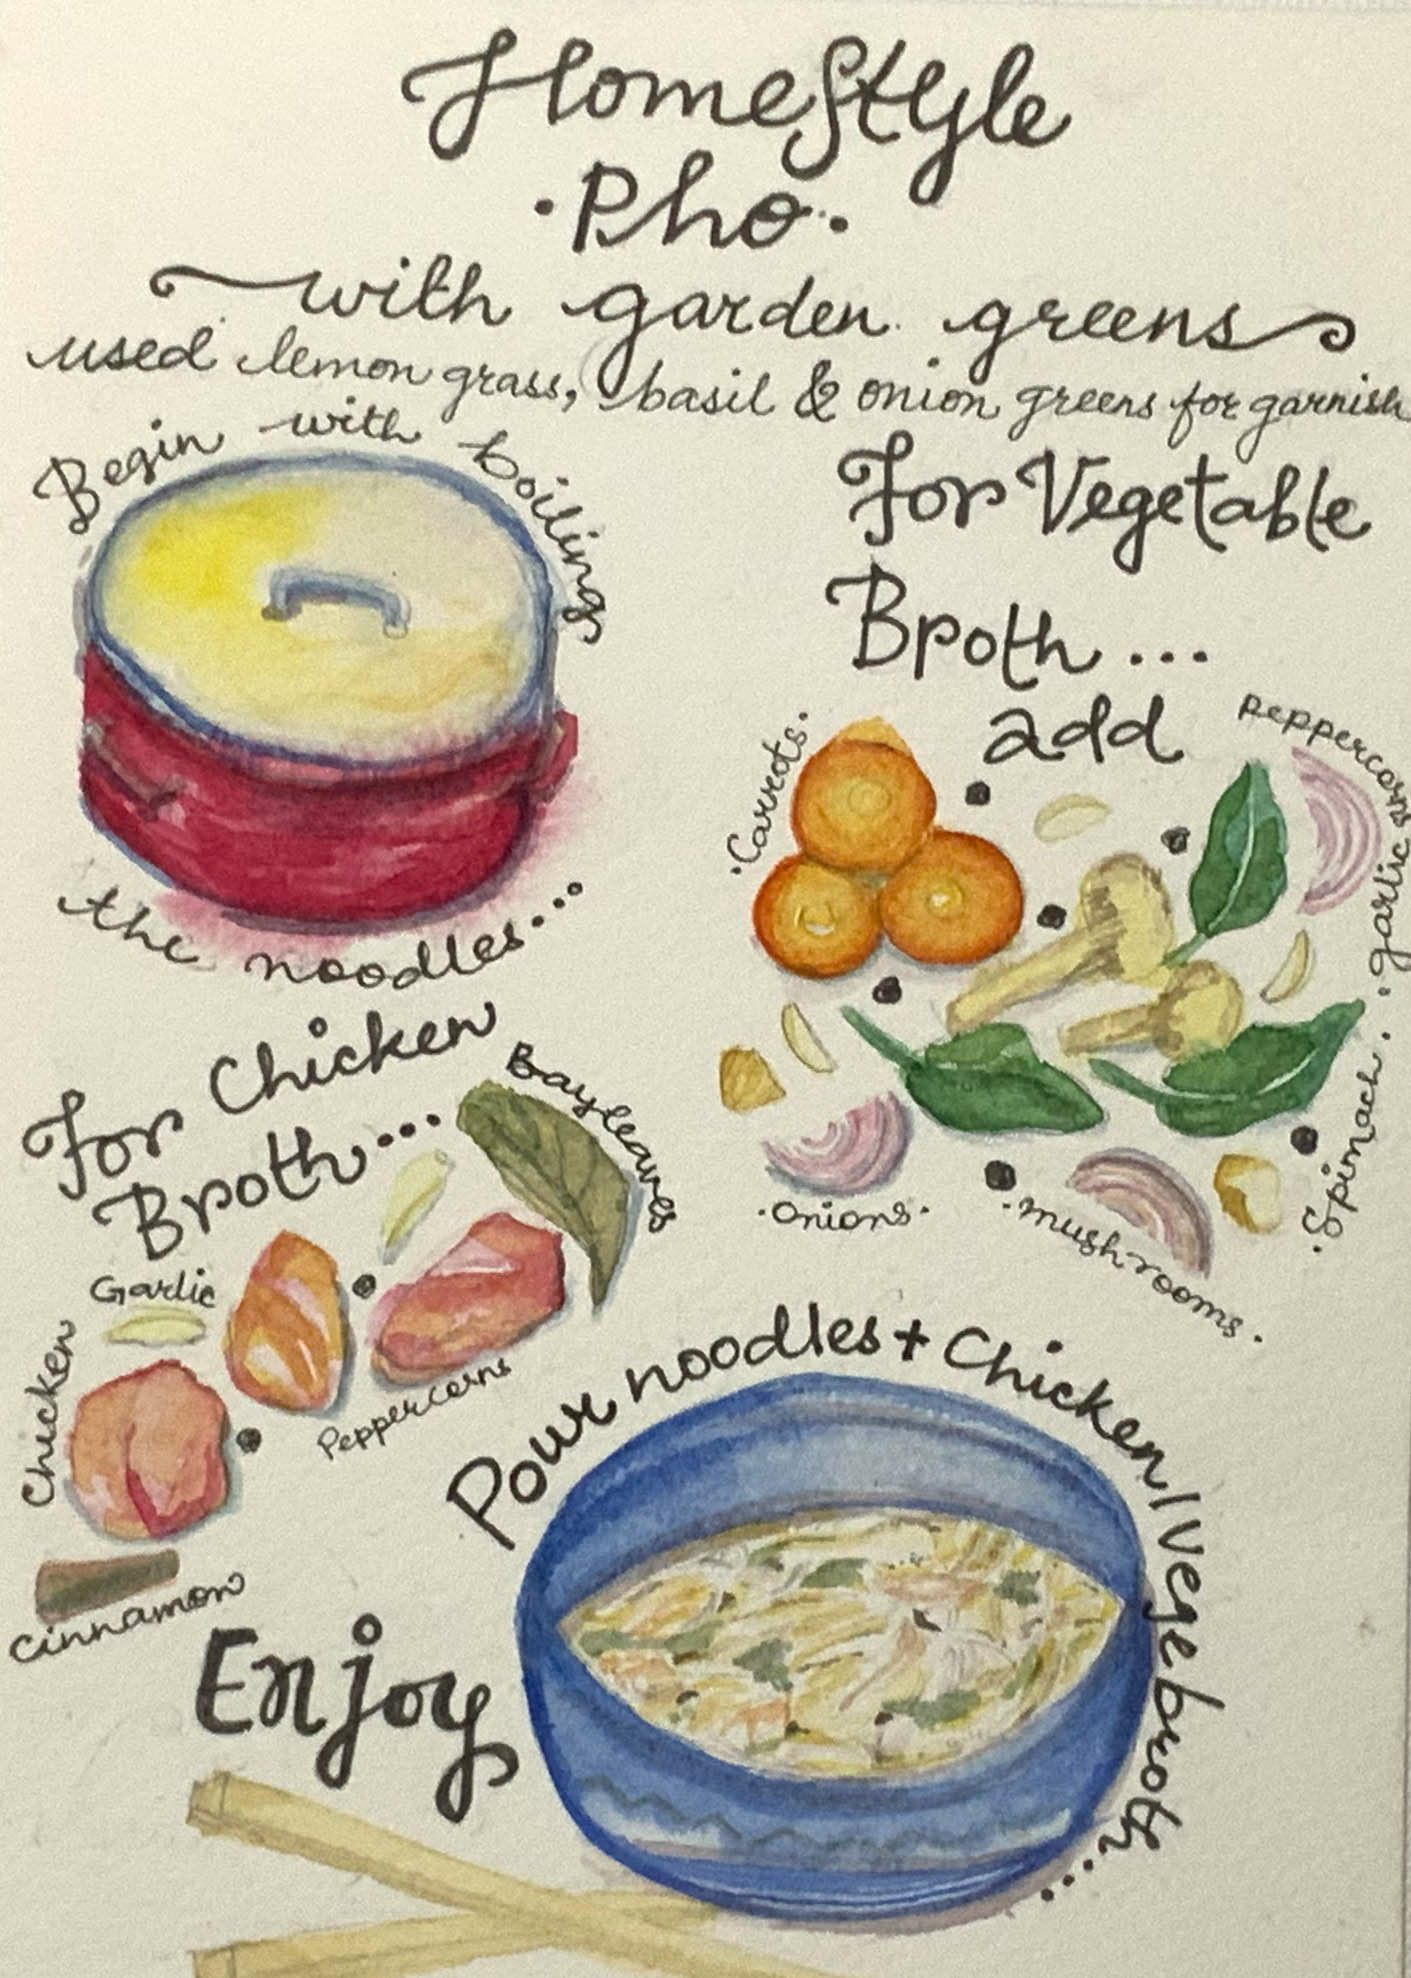 Homestyle
·Pho·
with garden greens
used lemon grass, basil & onion greens for garnish
Begin with boiling
the noodles...
For Vegetable
Broth...
add
·Carrots·
peppercorns
·garlic
·Spinach·
·Onions·
·mushrooms·
For Chicken
Broth...
Bayleaves
Garlic
Chicken
Peppercorns
Cinnamon
Pour noodles + Chicken/Vege broth....
Enjoy